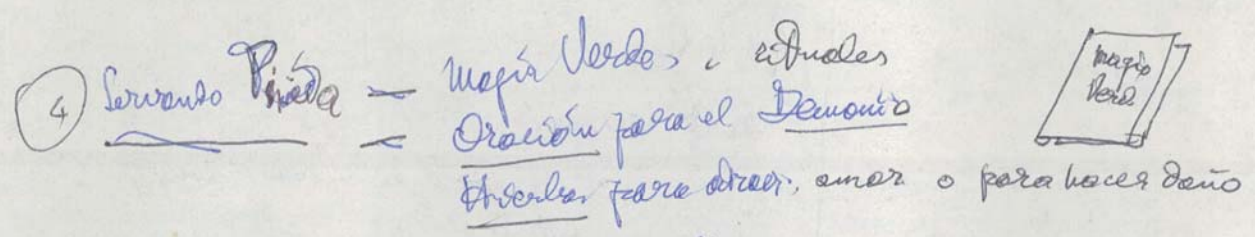 4 Servando Pineda = Magia Verde, rituales
Oración para el Demonio
Hierbas para atraer, amor o para hacer daño
Magia
Verde